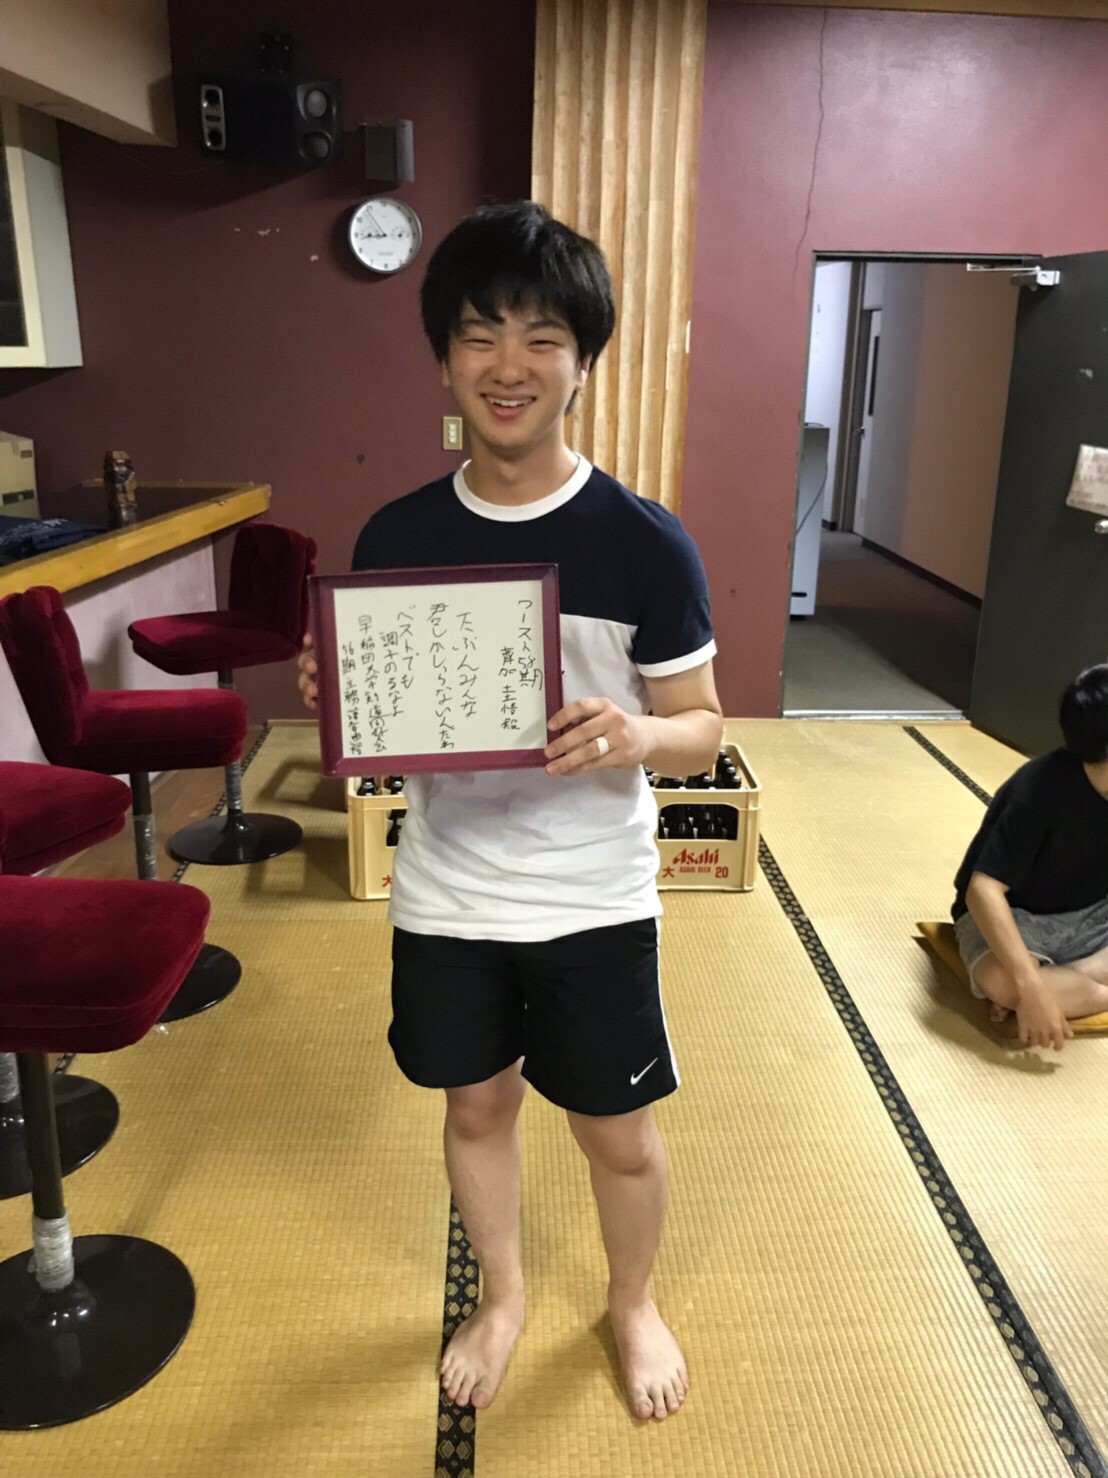 ワースト58期
草加 圭悟殿
たぶんみんな
君しかしらないんだわ
ベストでも
調子のるなよ
早稲田大学剣道同好会
56期
Asahi
ASAHI BEER
大
20
大